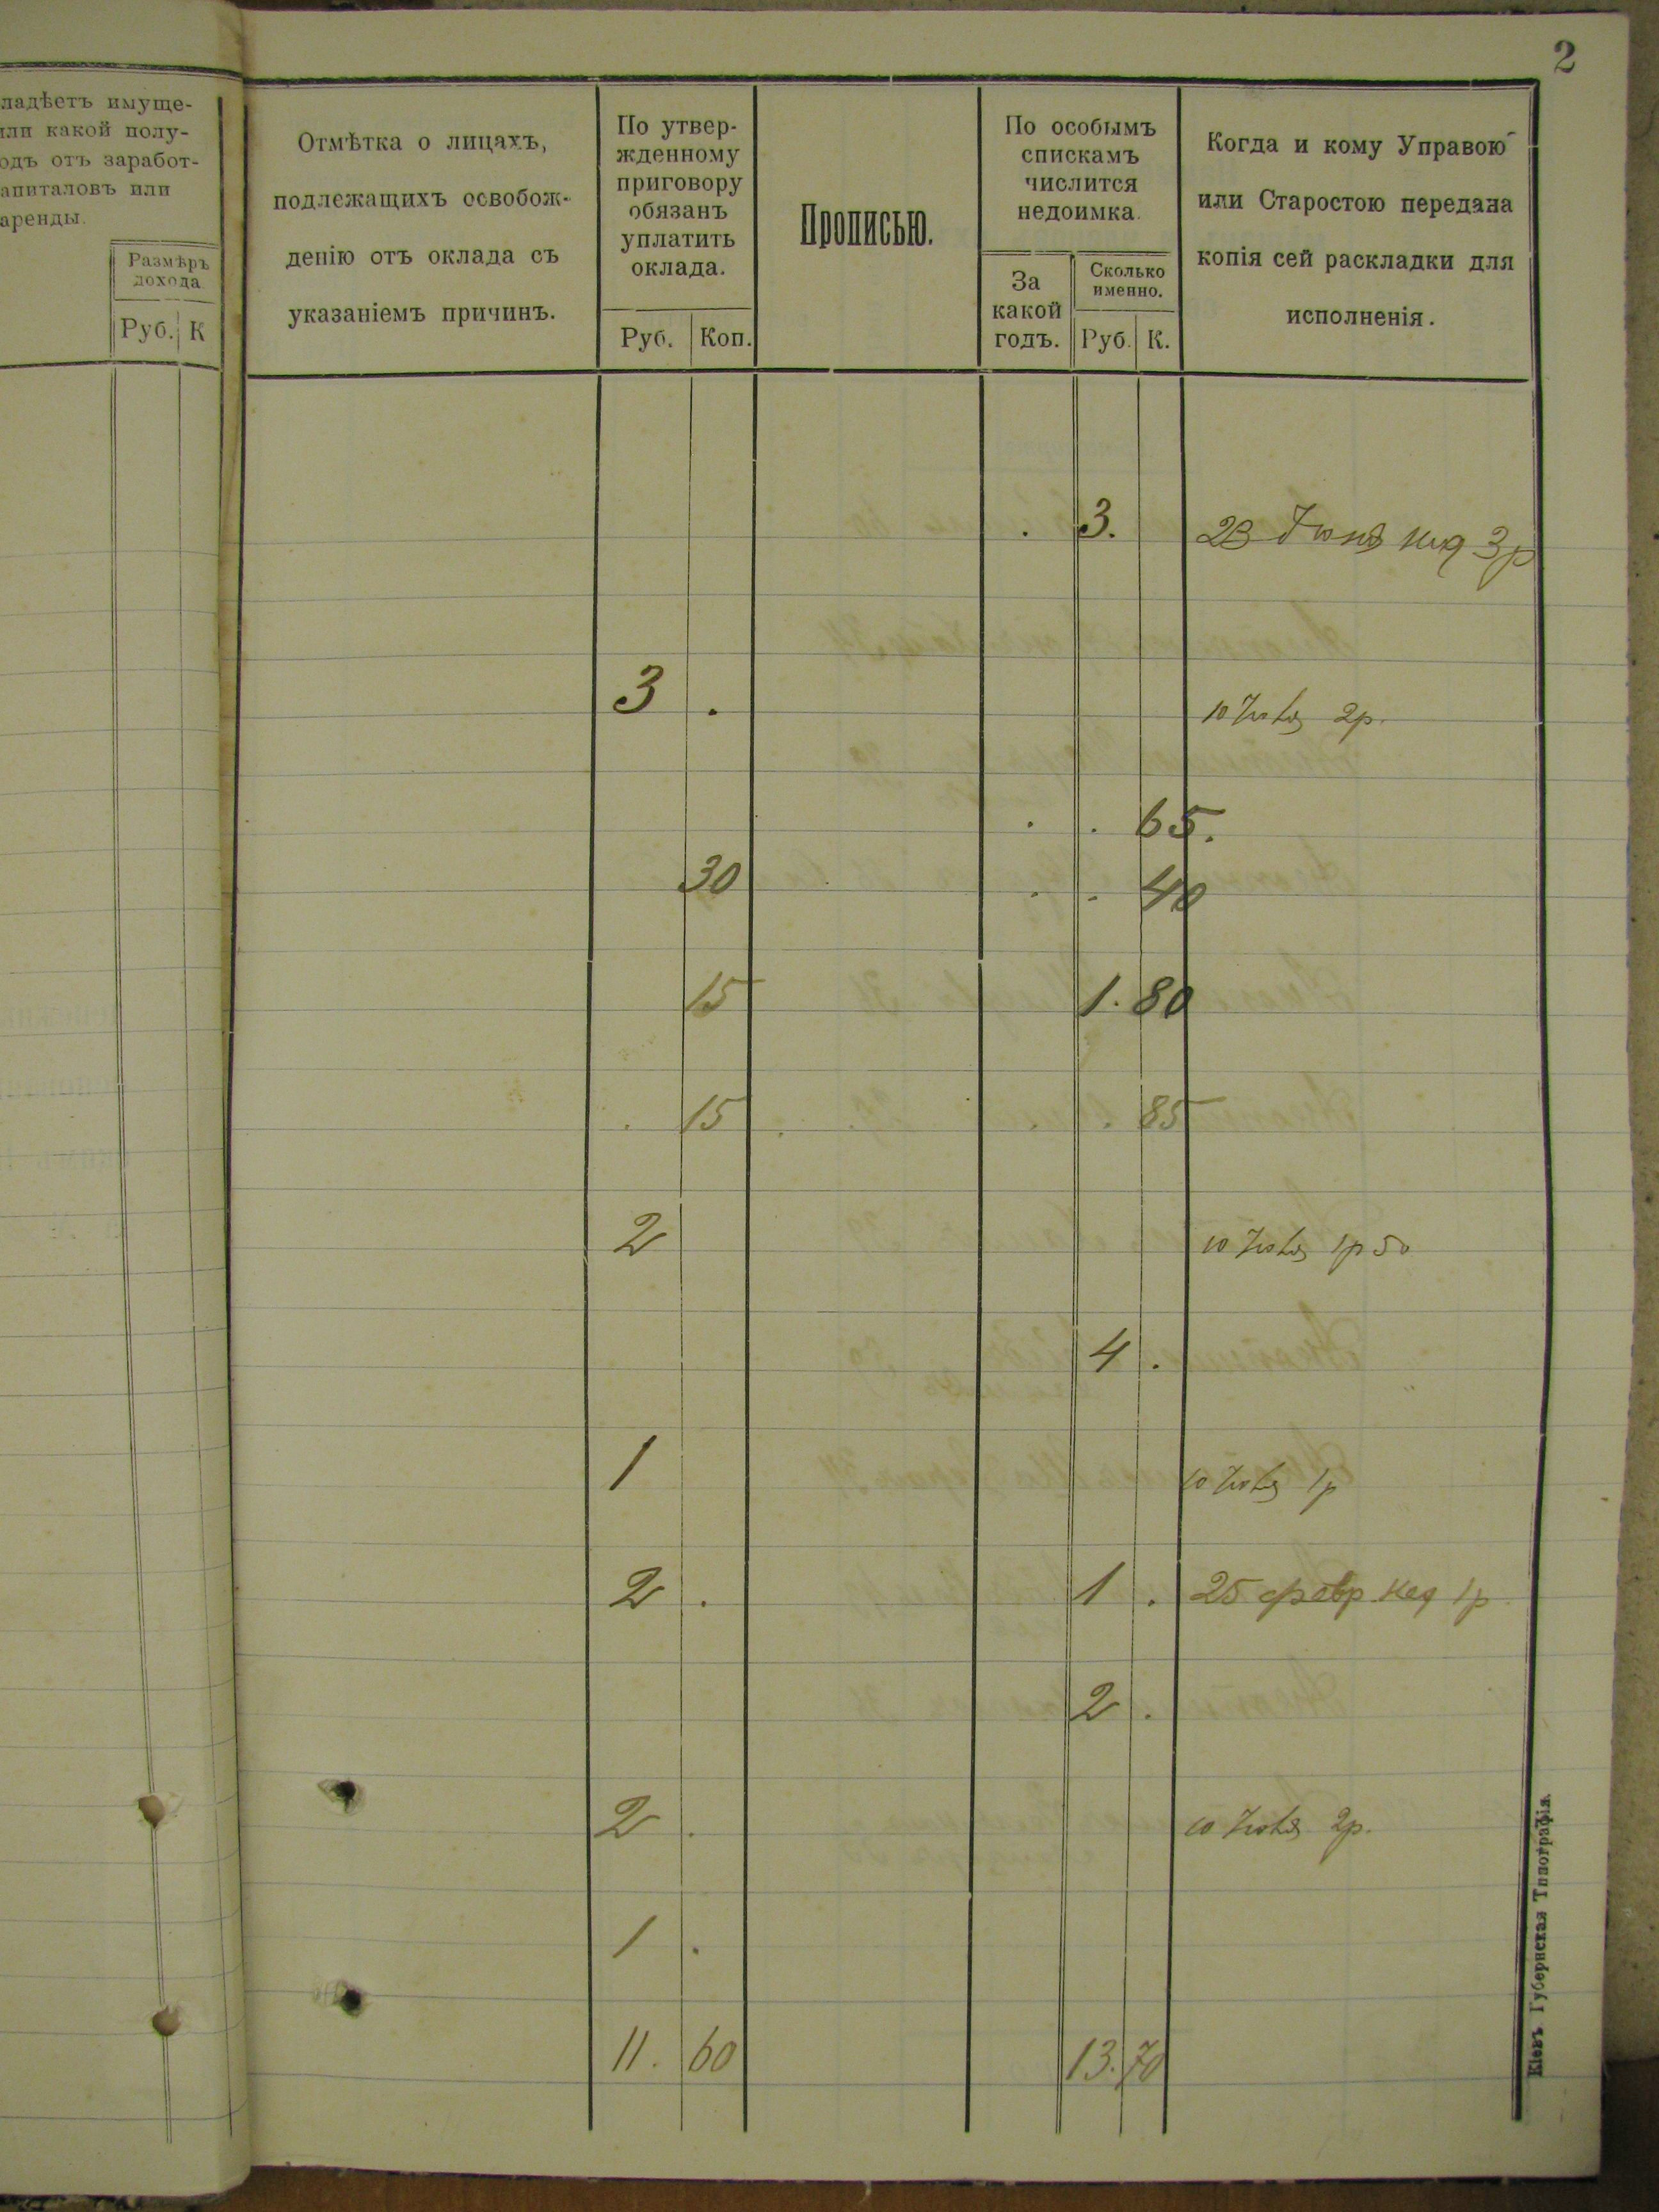 2
ладѣетъ имуще-
или какой полу-
одъ отъ заработ-
апиталовъ или
аренды.
Размѣръ
дохода
Руб. К
Отмѣтка о лицахъ,
подлежащихъ освобож-
денію отъ оклада съ
указаніемъ причинъ.
По утвер-
жденному
приговору
обязанъ
уплатить
оклада.
Руб. Коп.
Прописью.
По особымъ
спискамъ
числится
недоимка.
За
какой
годъ.
Сколько
именно.
Руб. К.
Когда и кому Управою
или Старостою передана
копія сей раскладки для
исполненія.
. 3. 23 Іюня 3р
3 . 10 2р.
. . 65.
30 . . 40
15 1. 80
. 15 . . 85
2 10 1р 50
4 .
1 10 1р
2 . 1 . 25 февр 1р
2 .
2 . 10 2р.
1 .
11. 60 13. 70
Кіевъ. Губернская Типографія.